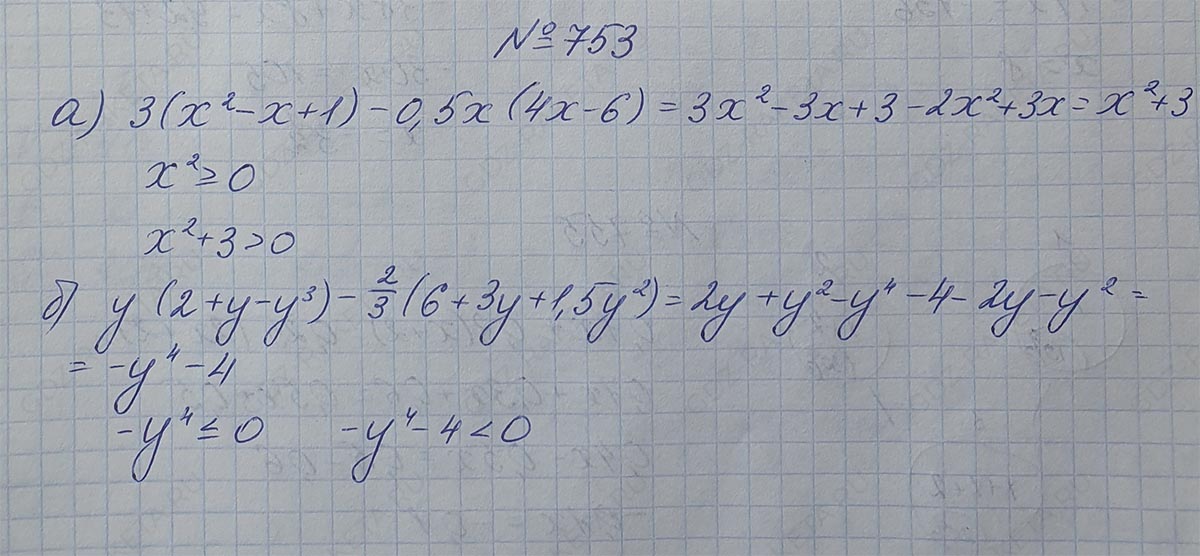 № 753
а) 3(x² - x + 1) - 0,5x (4x - 6) = 3x² - 3x + 3 - 2x² + 3x = x² + 3
x² ≥ 0
x² + 3 > 0
б) y (2 + y - y³) - 2/3 (6 + 3y + 1,5y²) = 2y + y² - y⁴ - 4 - 2y - y² =
= -y⁴ - 4
-y⁴ ≤ 0 -y⁴ - 4 < 0